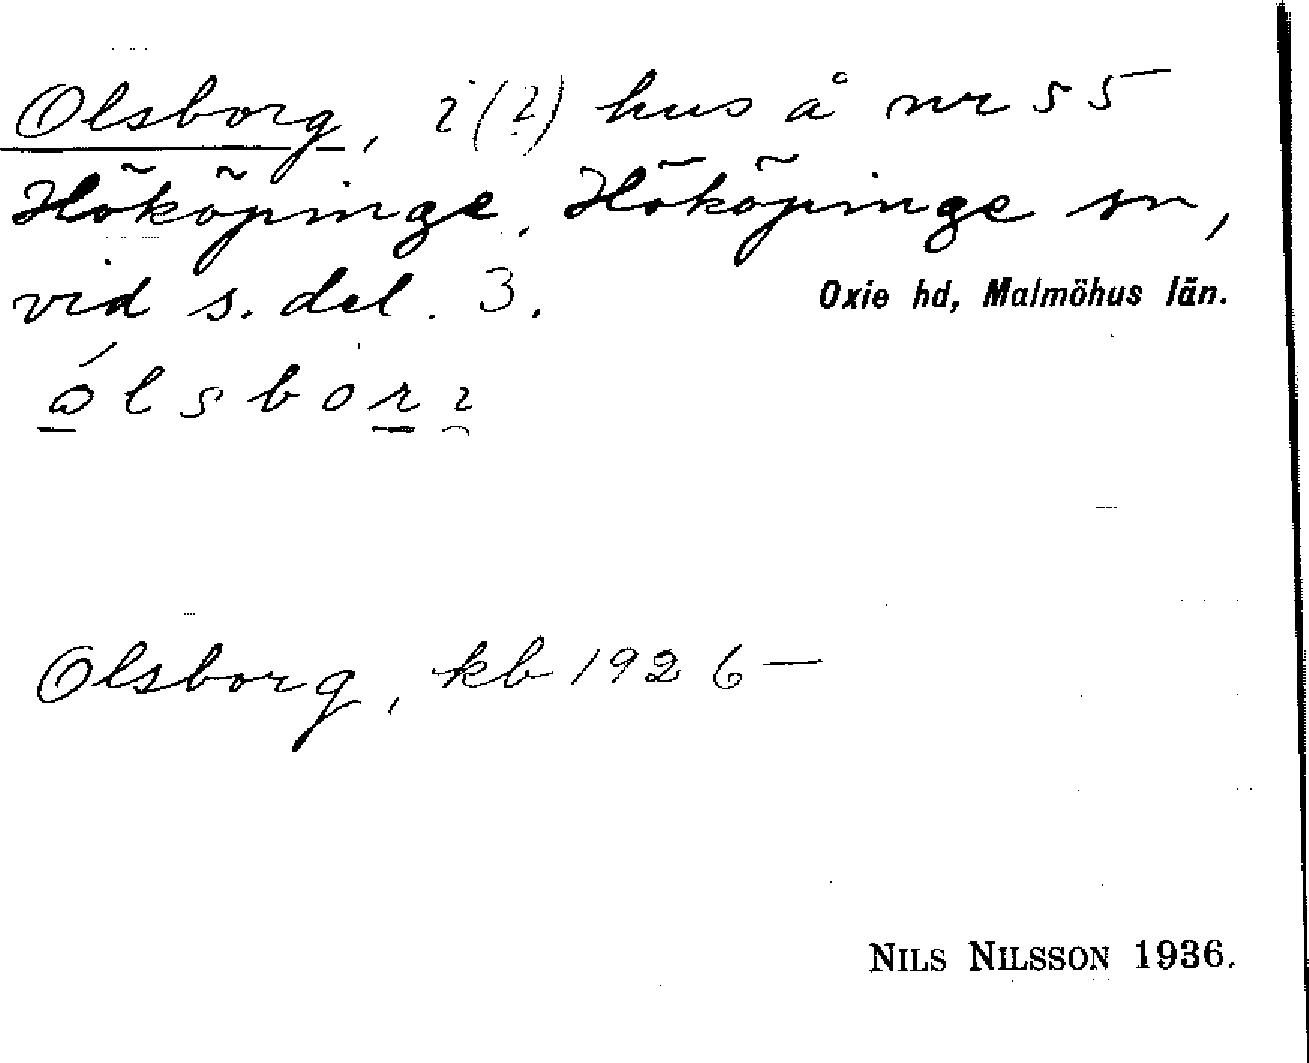 Olsborg, 2(?) hus å nr 55
Hököpinge, Hököpinge sn,
vid s. del. 3.
Oxie hd, Malmöhus län.
Olsborg, kb 1926–
NILS NILSSON 1936.